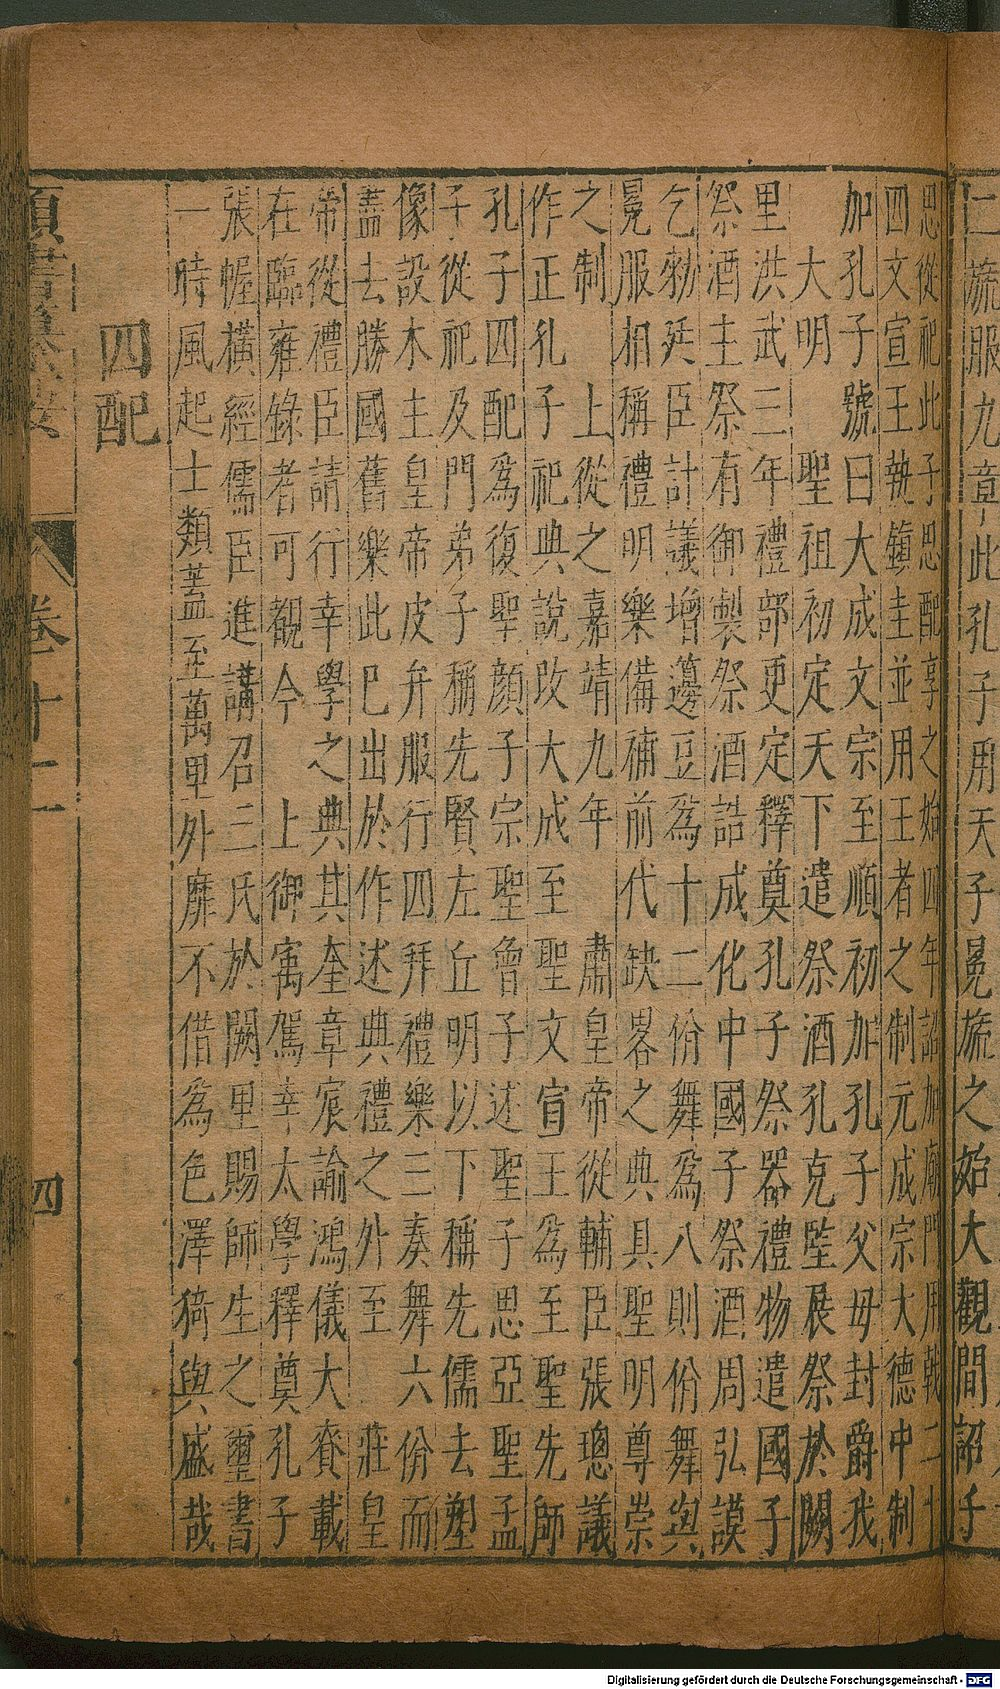 二旒服九章此孔子用天子冕旒之始大觀間詔子
思從祀此子思配享之始四年詔加廟門用戟二十
四文宣王執鎮圭並用王者之制元成宗大德中制
加孔子號曰大成文宗至順初加孔子父母封爵我
大明 聖祖初定天下遣祭酒孔克堅展祭於闕
里洪武三年禮部更定釋奠孔子祭器禮物遣國子
祭酒主祭有御製祭酒誥成化中國子祭酒周弘謨
乞勑廷臣計議增籩豆為十二佾舞為八則佾舞與
冕服相稱禮明樂備補前代缺畧之典具聖明尊崇
之制 上從之嘉靖九年 肅皇帝從輔臣張璁議
作正孔子祀典說改大成至聖文宣王為至聖先師
孔子四配為復聖顏子宗聖曾子述聖子思亞聖孟
子從祀及門弟子稱先賢左丘明以下稱先儒去塑
像設木主皇帝皮弁服行四拜禮樂三奏舞六佾而
蓋去勝國舊樂此巳出於作述典禮之外至 莊皇
帝從禮臣請行幸學之典其奎章宸諭鴻儀大賚載
在臨雍錄者可觀今 上御寓駕幸太學釋奠孔子
張幄橫經儒臣進講召三氏於闕里賜師生之璽書
一時風起士類蓋至萬里外靡不借為色澤猗與盛哉
四配
卷十二
四
Digitalisierung gefördert durch die Deutsche Forschungsgemeinschaft - DFG